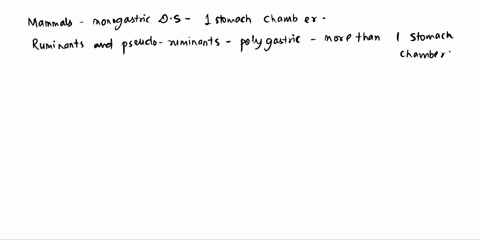 Mammals - monogastric D.S - 1 stomach chamber.
Ruminants and pseudo-ruminants - polygastric - more than 1 stomach
chamber.